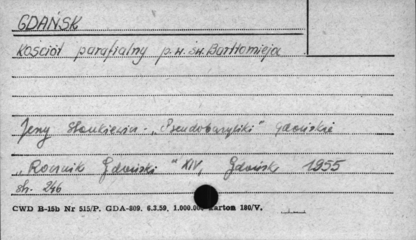 GDAŃSK
Kościół parafialny p.w. św. Bartłomieja
Jerzy Stankiewicz - "Pseudobazyliki" gdańskie
"Rocznik Gdański" XIV, Gdańsk 1955
str. 246
CWD B-15b Nr 515/P. GDA-809. 6.3.59. 1.000.000 karton 180/V.